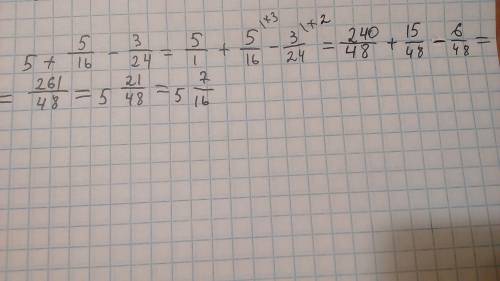 5 + 5/16 - 3/24 = 5/1 + 5/16 ^(1×3) - 3/24 ^(1×2) = 240/48 + 15/48 - 6/48 =
= 261/48 = 5 21/48 = 5 7/16